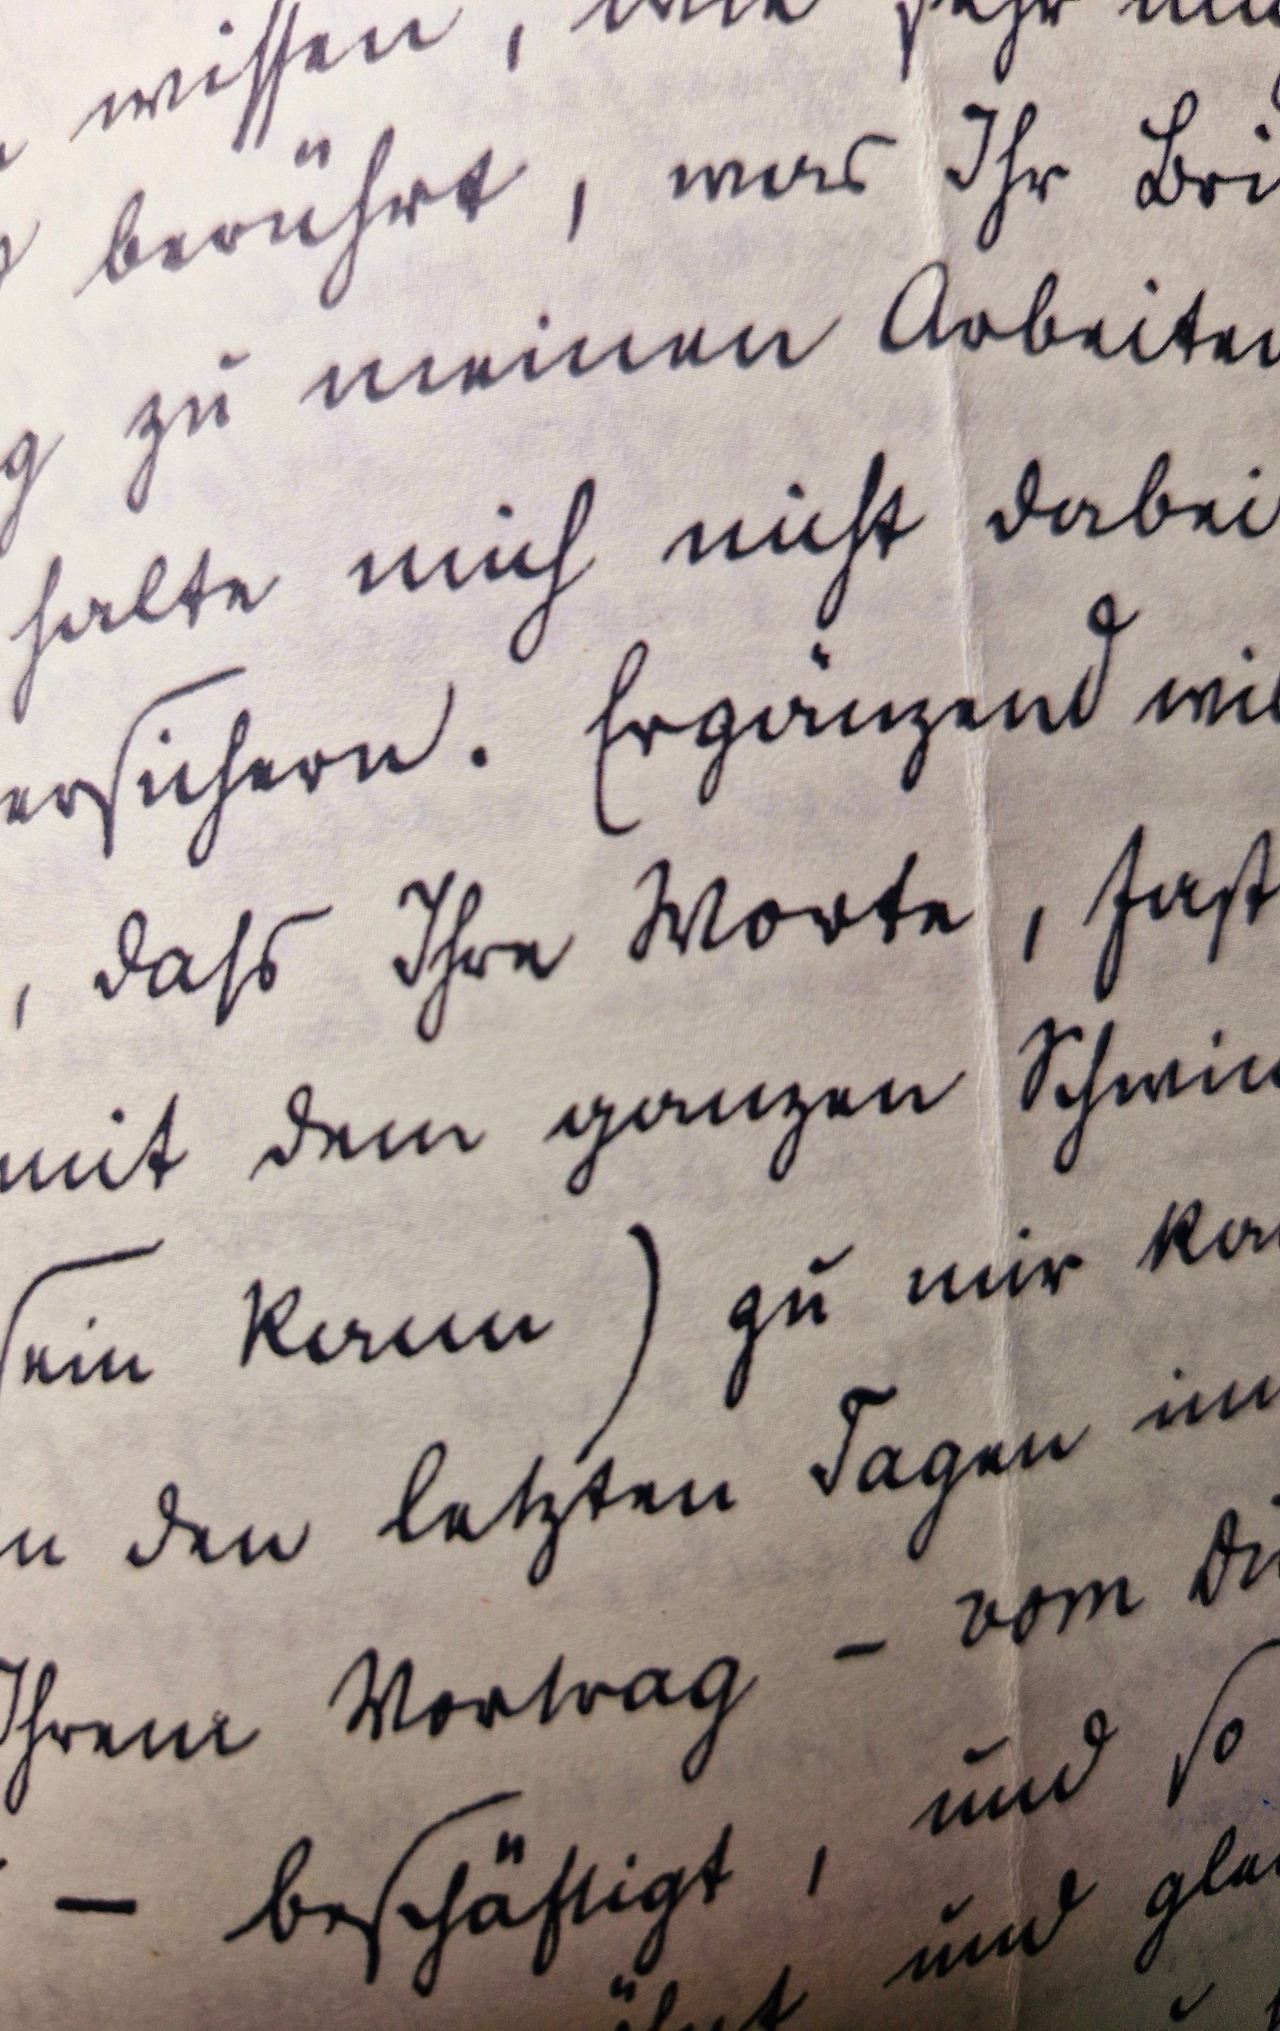 wissen, wie sehr
berührt, was Ihr
zu meinen Arbeiten
halte mich nicht dabei
ersichern. Ergänzend
, dass Ihre Worte, fast
mit dem ganzen
sein kann) zu mir
den letzten Tagen im
Ihrem Vortrag – vom
– beschäftigt, und so
und